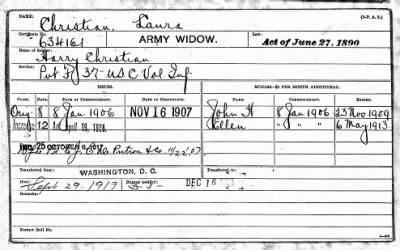 NAME: Christian, Laura (3-P. A. S.)
Certificate No. 634161 ARMY WIDOW. Law: Act of June 27, 1890
Name of Soldier: Harry Christian
Service: Pvt F, 37 U S C Vol Inf
ISSUES. MINORS—$2 PER MONTH ADDITIONAL.
CLASS. RATE. DATE OF COMMENCEMENT. DATE OF CERTIFICATE. NAME. COMMENCEMENT. EXPIRATION.
Orig 8 8 Jan 1906 NOV 16 1907 John H 8 Jan 1906 23 Nov 1909
Increase 12 April 19, 1908. Ellen " " " 6 May 1913
Inc. 25 OCTOBER 6, 1917
& Co. 11/22/07
Transferred from WASHINGTON, D. C. Transferred to
Died: Sept 29. 1917 Bureau notified: DEC
Remarks:
Former Roll No.